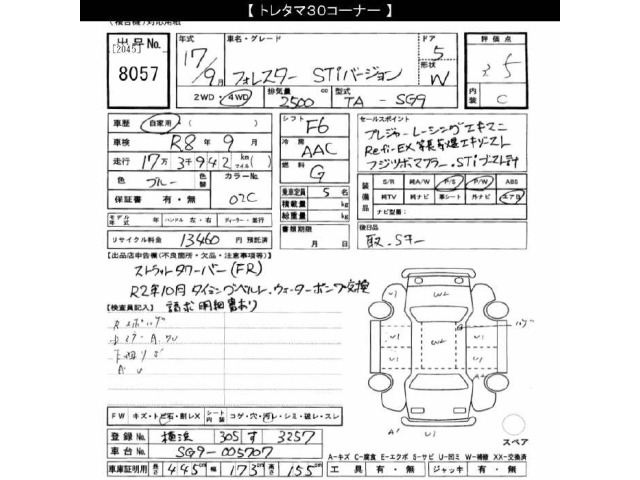 【 トレタマ30コーナー 】
(複合機)対応用紙
出品No. [2045] 8057
年式 17/9月
車名・グレード フォレスター STiバージョン
ドア 5
形状 W
2WD・4WD
排気量 2500 cc
型式 TA - SG9
評価点 3.5
内装 C
車歴 自家用
車検 R8年9月
走行 17万3千942 km(マイル)
色 ブルー 色替
カラーNo. 02C
保証書 有・無
モデル年式 年 ハンドル 左・右 ディーラー・並行
リサイクル料金 13460円 預託済
シフト F6
冷房 AAC
燃料 G
乗車定員 5 名
積載量 kg
総重量 kg
書類期限 月 日
セールスポイント
プレジャーレーシングエキマニ
フジツボマフラー.STiブースト計
装備品 S/R 純A/W P/S P/W ABS
純TV 純ナビ 革シート 外ナビ エアB
ナビ型番:
後日品
取.Sキー
【出品店申告欄(不良箇所・欠品・注意事項等)】
ストラットタワーバー(FR)
R2年10月 タイミングベルト.ウォーターポンプ交換
請求明細書あり
【検査員記入】
FW キズ・トビ石・割レX シート内張 コゲ・穴・汚レ・シミ・破レ・スレ
登録No. 横浜 305 す 3257
車台No. SG9-005707
車庫証明印刷 長さ 445cm 幅 173cm 高さ 155cm
U1
W2
A1
U1
スペア
A-キズ C-腐食 E-エクボ S-サビ U-凹ミ W-補修 XX-交換済
工具 有・無 ジャッキ 有・無